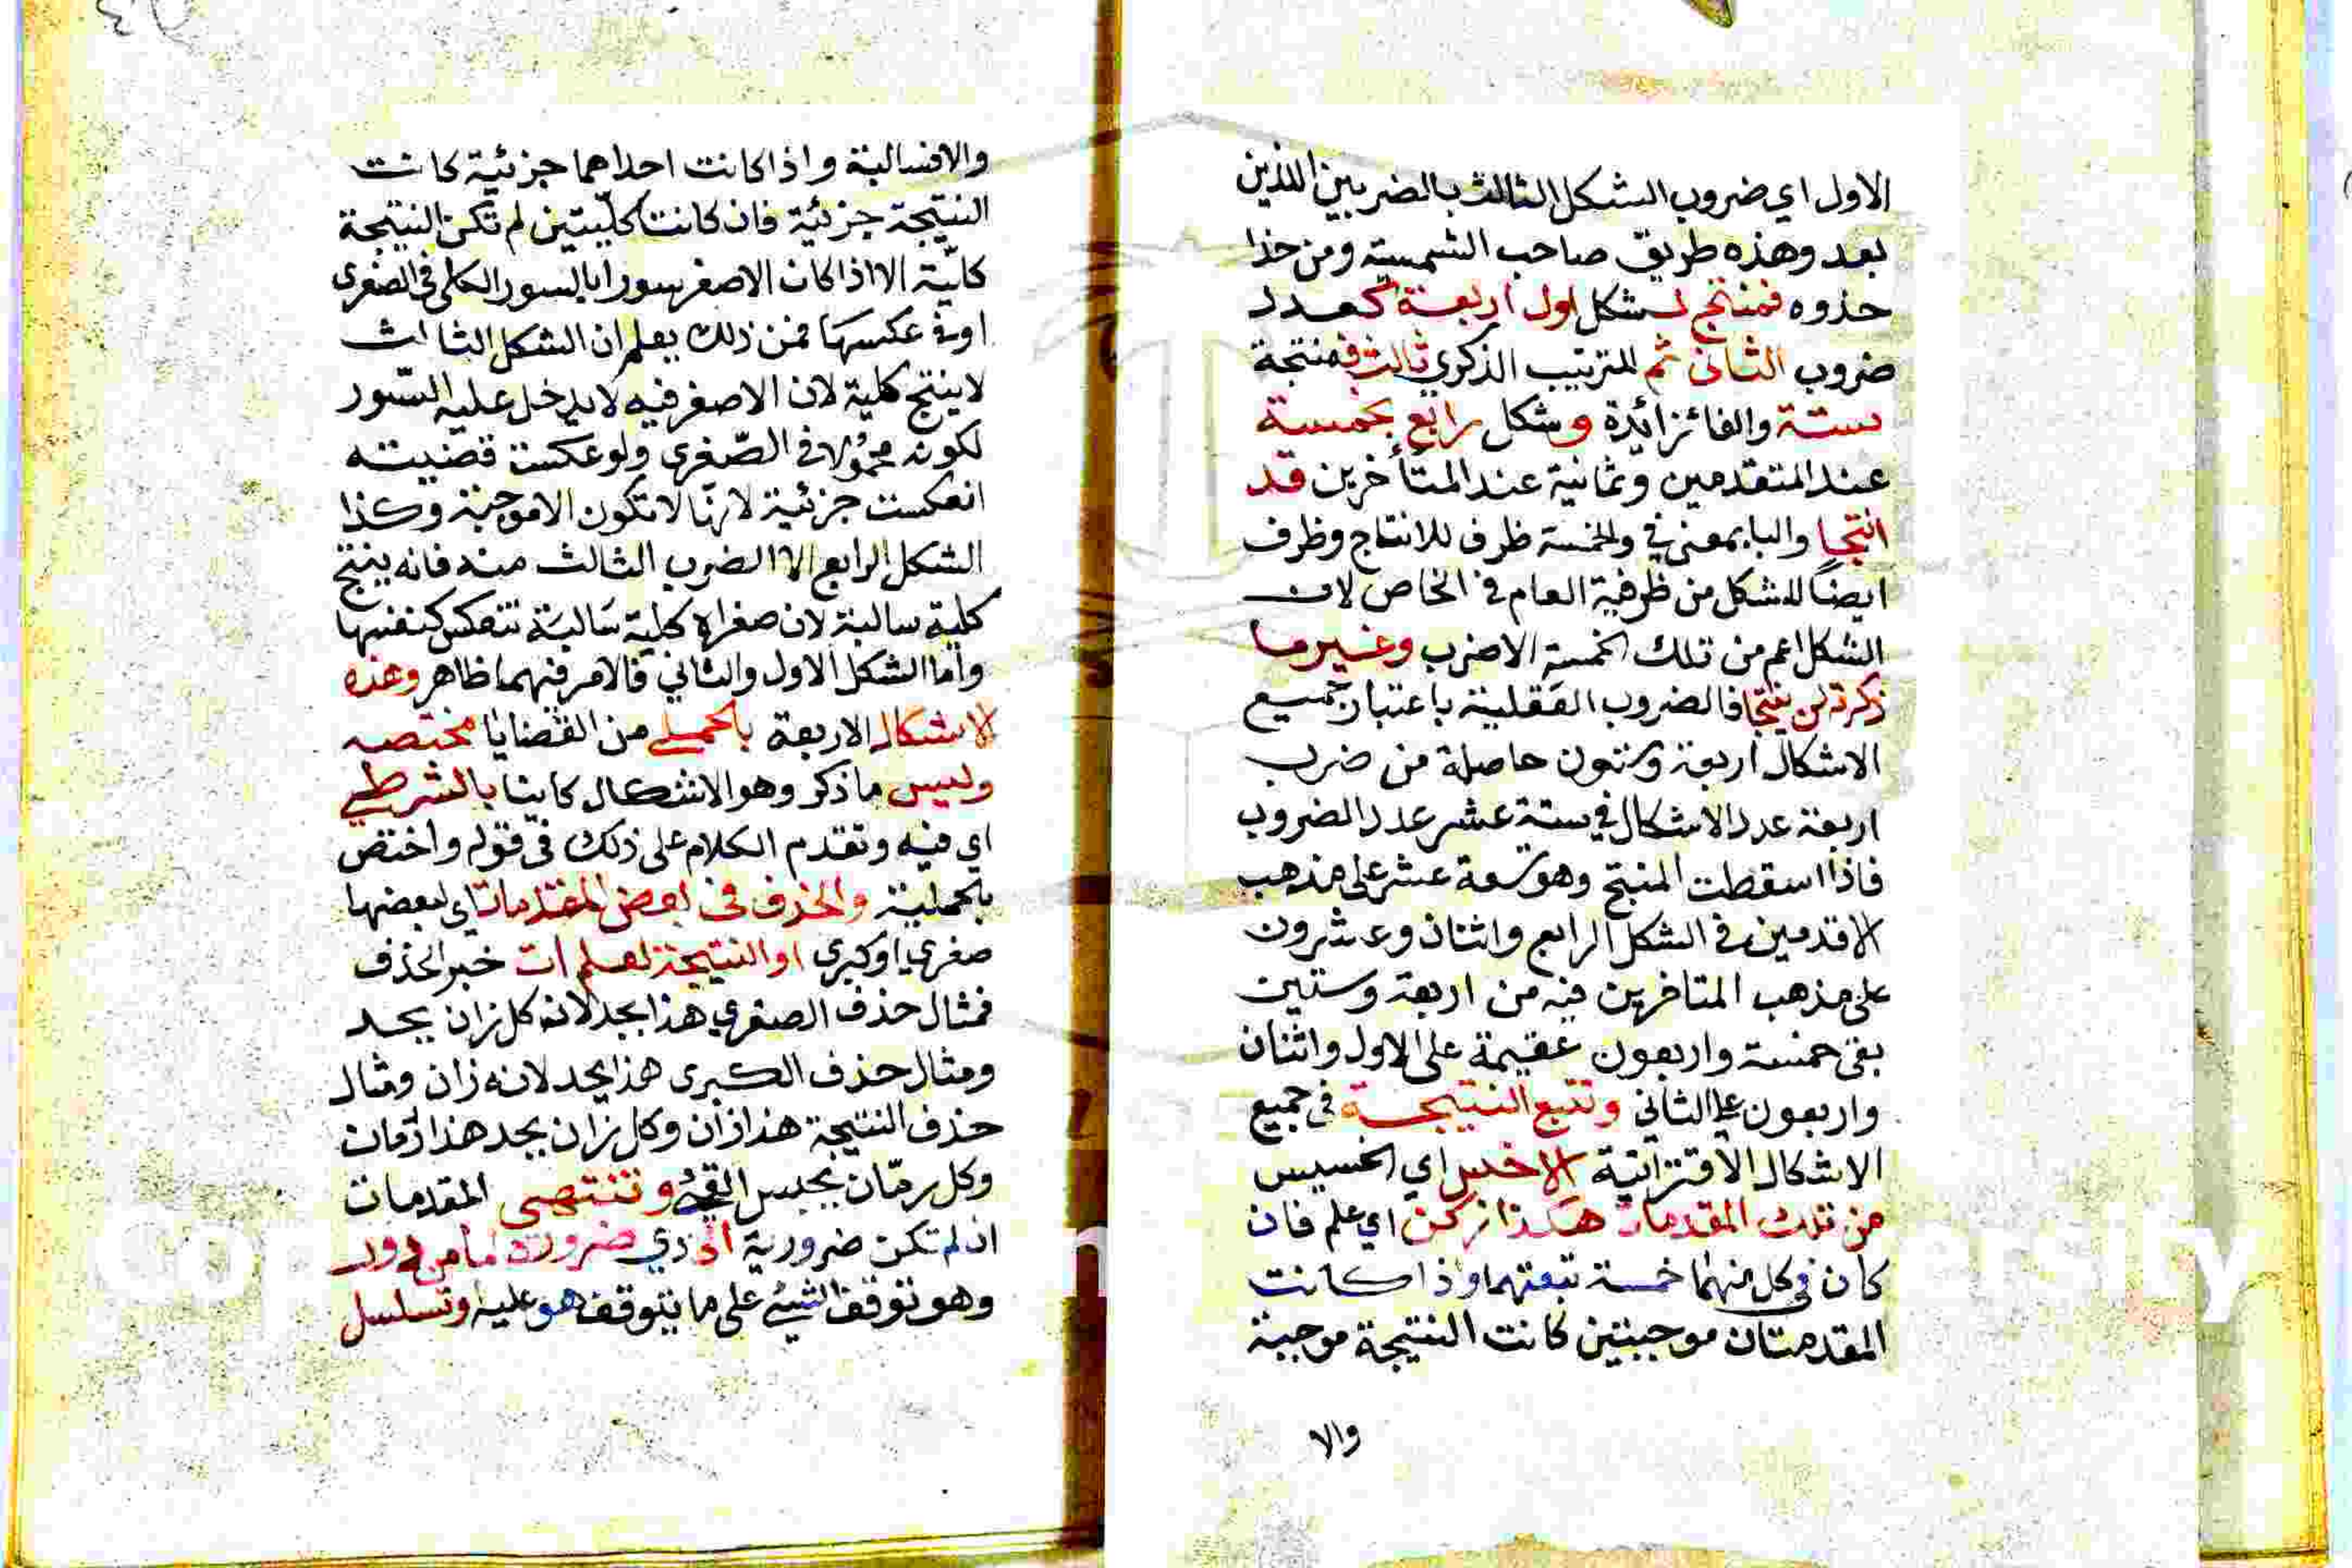 الاول اي ضروب الشكل الثالث بالضربين اللذين
بعد وهذه طريق صاحب الشمسية ومن حذا
حذوه فمنتج لشكل اول اربعة كعدد
ضروب الثاني ثم للترتيب الذكري ثالث فمنتجة
ستة والفا زائدة وشكل رابع بخمسة
عند المتقدمين وثمانية عند المتأخرين قد
انتجا والبا بمعنى في والخمسة ظرف للانتاج وظرف
ايضًا للشكل من ظرفية العام في الخاص لان
الشكل اعم من تلك الخمسة الاضرب وغير ما
ذكرته لن ينتجا فالضروب العقلية باعتبار جميع
الاشكال اربعة وستون حاصلة من ضرب
اربعة عدد الاشكال في ستة عشر عدد الضروب
فاذا اسقطت المنتج وهو تسعة عشر على مذهب
الاقدمين في الشكل الرابع واثنان وعشرون
على مذهب المتاخرين فيه من اربعة وستين
بقي خمسة واربعون عقيمة على الاول واثنان
واربعون على الثاني وتتبع النتيجة في جميع
الاشكال الاقترانية الاخس اي الخسيس
من تلك المقدمات هكذا زكن اي علم فان
كان في كل منهما خسة تبعتهما واذا كانت
المقدمتان موجبتين كانت النتيجة موجبة
والا
والا فسالبة واذا كانت احداهما جزئية كانت
النتيجة جزئية فان كانت كليتين لم تكن النتيجة
كلية الا اذا كان الاصغر سورا بالسور الكلي في الصغرى
او في عكسها فمن ذلك يعلم ان الشكل الثالث
لا ينتج كلية لان الاصغر فيه لا يدخل عليه السّور
لكونه محمولا في الصّغرى ولو عكست قضيته
انعكست جزئية لانها لا تكون الا موجبة وكذا
الشكل الرابع الا الضرب الثالث منه فانه ينتج
كلية سالبة لان صغراه كلية سالبة تنعكس كنفسها
واما الشكل الاول والثاني فالامر فيهما ظاهر وهذه
الاشكال الاربعة بالحملي من القضايا مختصه
وليس ما ذكر وهو الاشكال كاينا بالشرطي
اي فيه وتقدم الكلام على ذلك في قوله واختص
بالحملية والحذف في بعض المقدمات اي لبعضها
صغرى او كبرى او النتيجة لعلم ات خبر الحذف
فمثال حذف الصغرى هذا يحد لانه كل زان يحد
ومثال حذف الكبرى هذا يحد لانه زان ومثال
حذف النتيجة هذا زان وكل زان يحد هذا رمان
وكل رمّان يحبس القيء وتنتهي المقدمات
ان لم تكن ضرورية الى ذي ضرورة لما من دور
وهو توقف الشيئ على ما يتوقف هو عليه وتسلسل